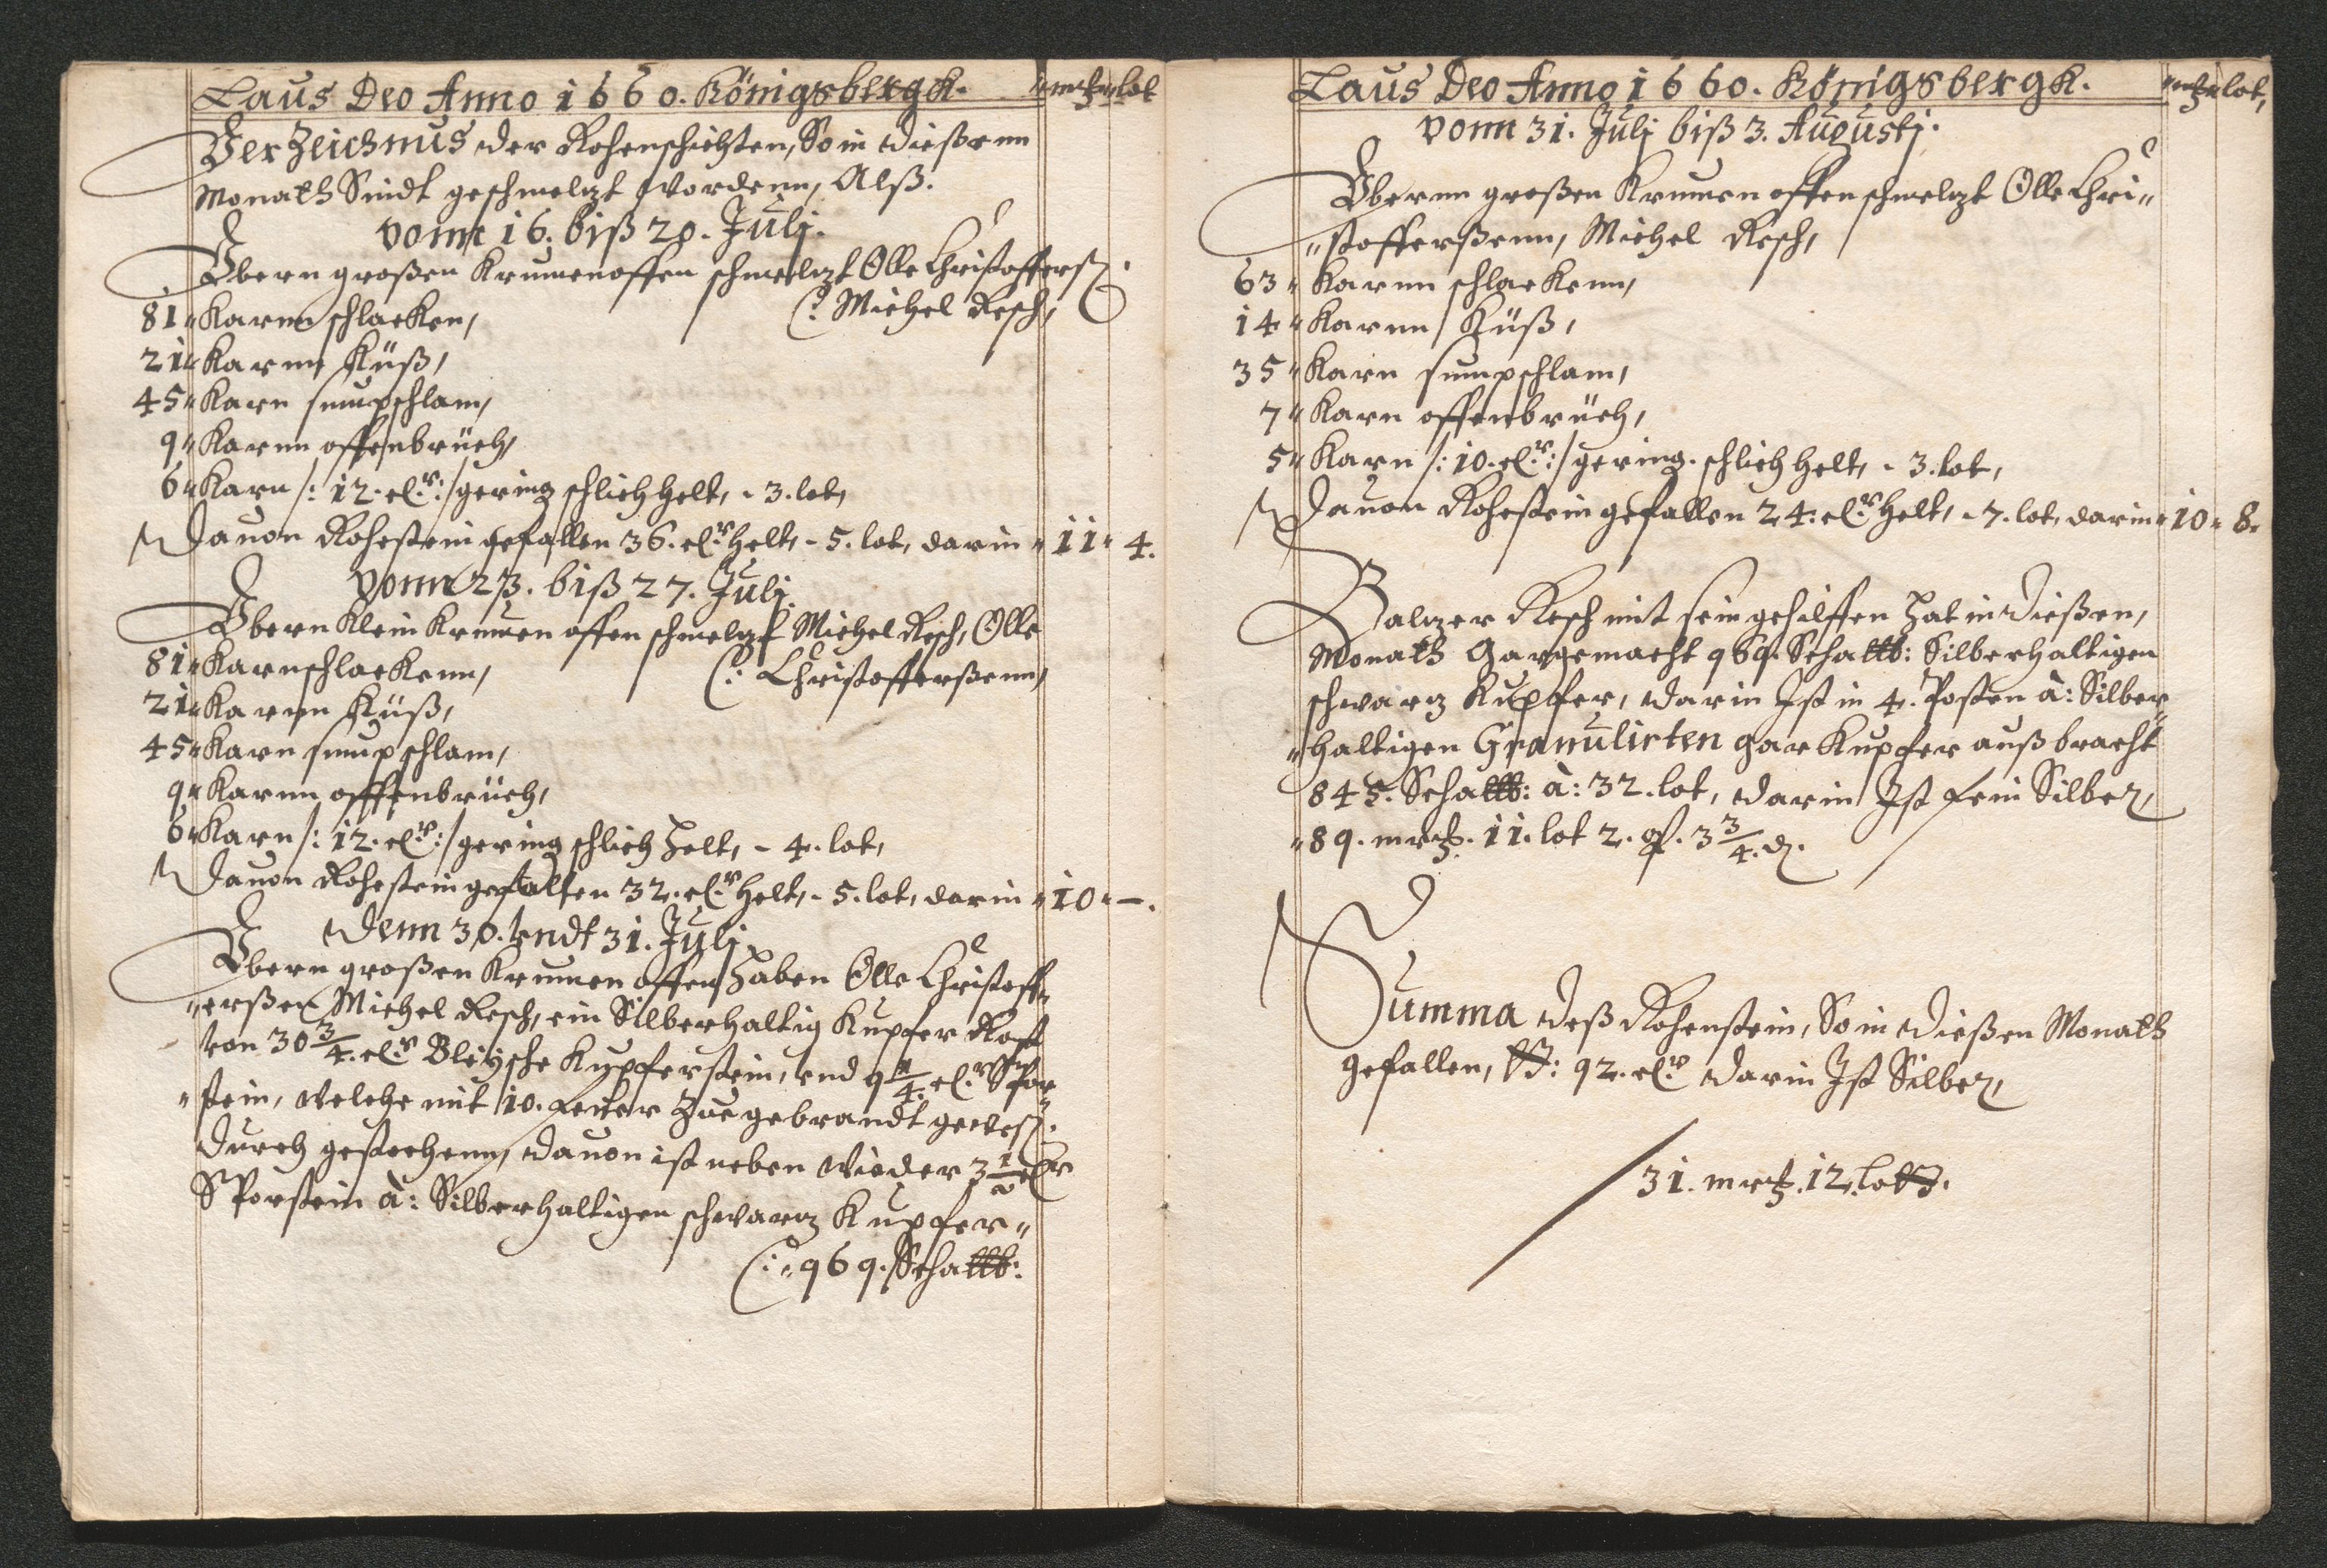 Laus Deo Anno 1660. Königsbergk. mrk lot
Verzeichnus der Rohenschichten, So in dießenn
Monath Sindt geschmeltzt wordenn, Alß.
vonn 16. biß 20. Julj.
Vbern großen Krumenoffen schmeltzt Olle Christofferß:
(: Michel Resch,
81 Karnn schlacken,
21 Karnn Küß,
45 Karn sumpschlam,
9 Karnn offenbrüch,
6 Karn /: 12. clr: / gering schlich helt, - 3. lot,
Dauon Rohestein gefallen 36. clr helt, - 5. lot, darin " 11 " 4.
vonn 23. biß 27. Julj.
Vbern Klein Krumen offen schmeltzt Michel Resch, Olle
81 Karn schlackenn, (: Christofferßenn,
21 Karnn Küß,
45 Karn sumpschlam,
9 Karnn offenbrüch,
6 Karn /: 12. clr: / gering schlich helt, - 4. lot,
Dauon Rohestein gefallen 32. clr helt, - 5. lot, darin " 10 " —.
Denn 30. vndt 31. Julj.
Vbern großen Krumen offen haben Olle Christoff"
"erßen Michel Resch, ein Silberhaltig Kupfer Rost
von 30 3/4. clr Bleysche Kupferstein, vnd 9 1/4. clr Spor"
"stein, welche mit 10. feuer Zue gebrandt geweß:
durch gestochenn, dauon ist neben wieder 3 1/2 clr
Sporstein à: Silberhaltigen schwartz Kupfer"
(: " 969. Scha ℔:
Laus Deo Anno 1660. Königsbergk. mrk lot,
vonn 31. Julj biß 3. Augustj.
Vbernn großen Krumen offen schmeltzt Olle Chri"
"stofferßenn, Michel Resch,
63 " Karnn schlackenn,
14 " Karnn Küß,
35 " Karn sumpschlam,
7 " Karn offenbrüch,
5 " Karn /: 10. clr: / gering. schlich helt, - 3. lot,
Dauon Rohestein gefallen 24. clr helt, - 7. lot, darin " 10 " 8.
Baltzer Resch mit sein gehilffen hat in dießen,
Monath Gargemacht 969. Scha ℔: Silberhaltigen
schwartz Kupfer, darin Ist in 4. Posten à: Silber"
"haltigen Granulirten gar Kupfer außbracht
845. Scha ℔: à: 32. lot, darin Ist fein Silber,
"89. mrk. 11. lot 2. q. 3 3/4. d.
Summa deß Rohenstein, So in dießen Monath
gefallen, 92. clr darin Ist Silber,
31. mrk. 12. lott.